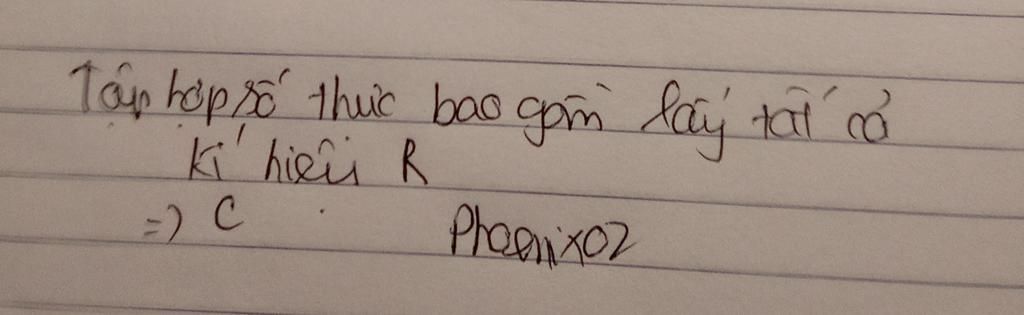 Tập hợp số thực bao gồm lấy tất cả
kí hiệu R
=> C
Phoenix02